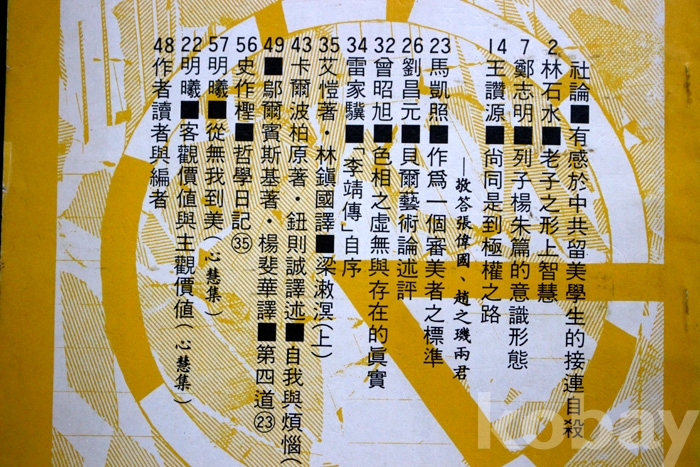 社論■有感於中共留美學生的接連自殺
2 林石水■老子之形上智慧
7 鄭志明■列子楊朱篇的意識形態
14 王讚源■尚同是到極權之路
—敬答張偉國、趙之璣兩君
23 馬凱照■作爲一個審美者之標準
26 劉昌元■貝爾藝術論述評
32 曾昭旭■色相之虛無與存在的眞實
34 雷家驥■「李靖傳」自序
35 艾愷著・林鎭國譯■梁漱溟(上)
43 卡爾波柏原著・鈕則誠譯述■自我與煩惱(
49 ■鄔爾賓斯基著・楊斐華譯■第四道㉓
56 史作檉■哲學日記㉟
57 明曦■從無我到美(心慧集)
22 明曦■客觀價値與主觀價値(心慧集)
48 作者讀者與編者
kobay